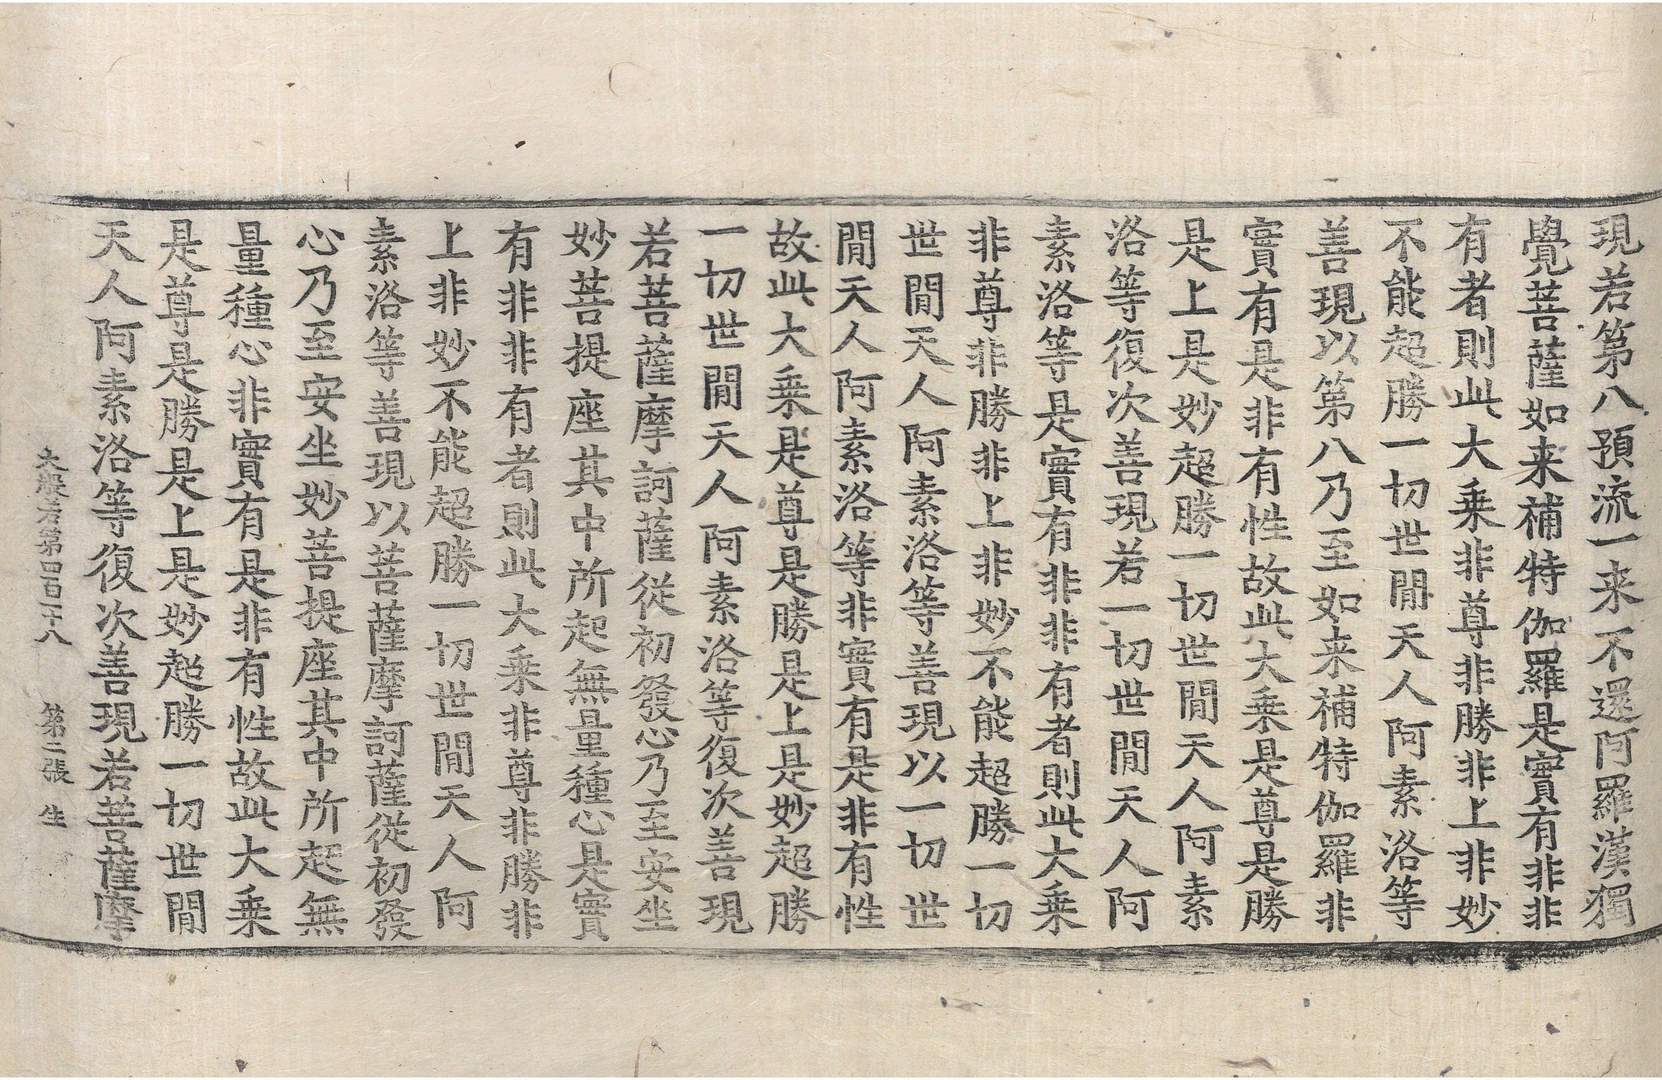 現若第八預流一来不還阿羅漢獨
覺菩薩如来補特伽羅是實有非非
有者則此大乗非尊非勝非上非妙
不能超勝一切世間天人阿素洛等
善現以第八乃至如来補特伽羅非
實有是非有性故此大乗是尊是勝
是上是妙超勝一切世間天人阿素
洛等復次善現若一切世間天人阿
素洛等是實有非非有者則此大乗
非尊非勝非上非妙不能超勝一切
世間天人阿素洛等善現以一切世
間天人阿素洛等非實有是非有性
故此大乗是尊是勝是上是妙超勝
一切世間天人阿素洛等復次善現
若菩薩摩訶薩從初發心乃至安坐
妙菩提座其中所起無量種心是實
有非非有者則此大乗非尊非勝非
上非妙不能超勝一切世間天人阿
素洛等善現以菩薩摩訶薩從初發
心乃至安坐妙菩提座其中所起無
量種心非實有是非有性故此大乗
是尊是勝是上是妙超勝一切世間
天人阿素洛等復次善現若菩薩摩
大般若第四百一十八 第二張 生